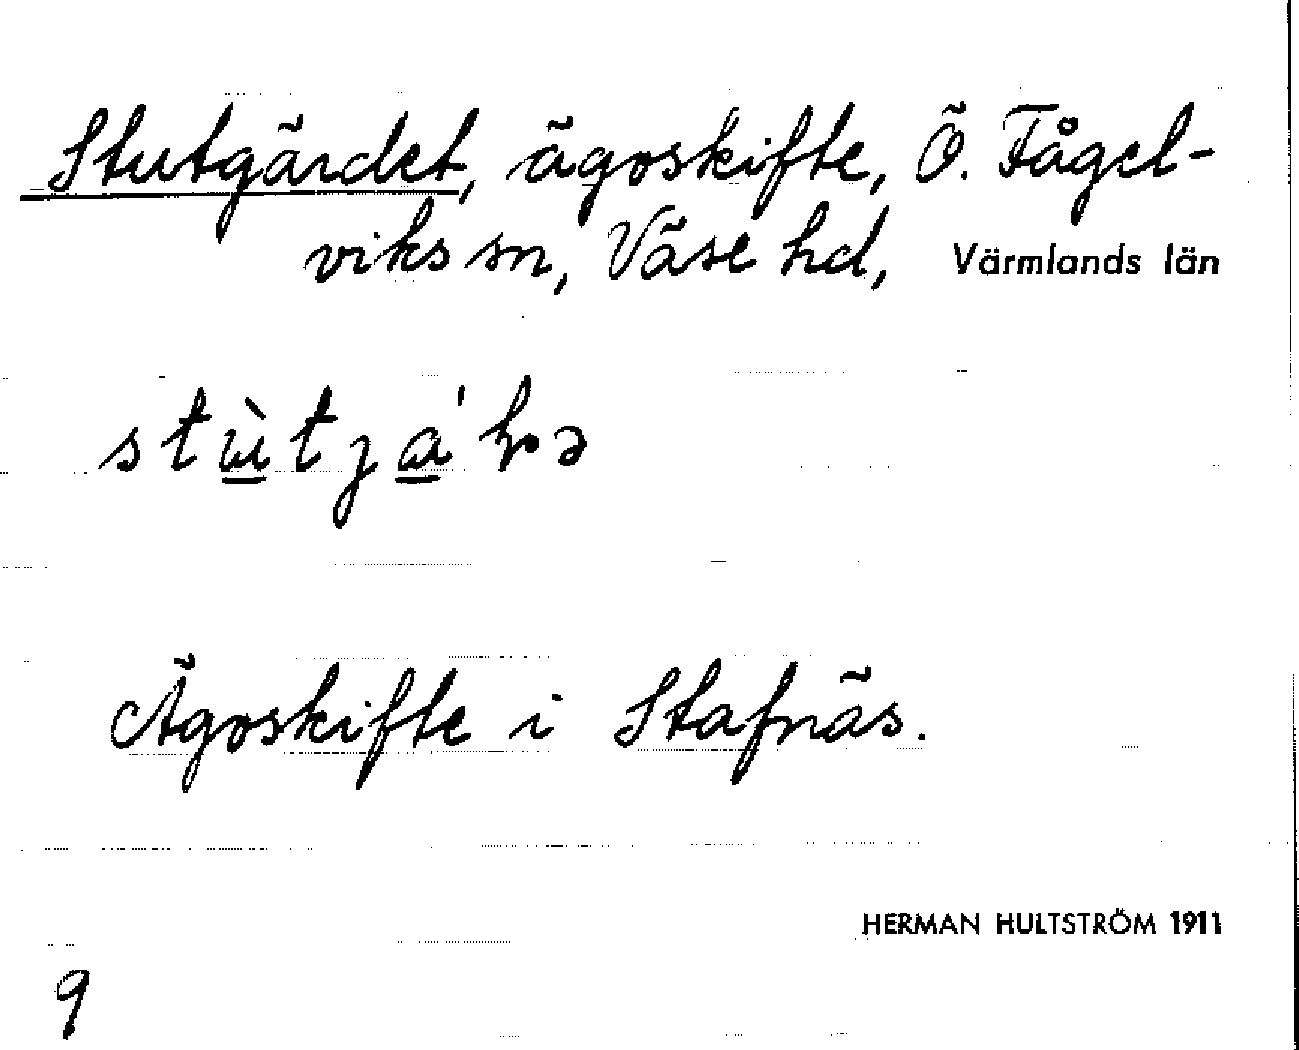 Stutgärdet, ägoskifte, Ö. Fågel-
viks sn, Väse hd, Värmlands län
Ägoskifte i Stafnäs.
HERMAN HULTSTRÖM 1911
9